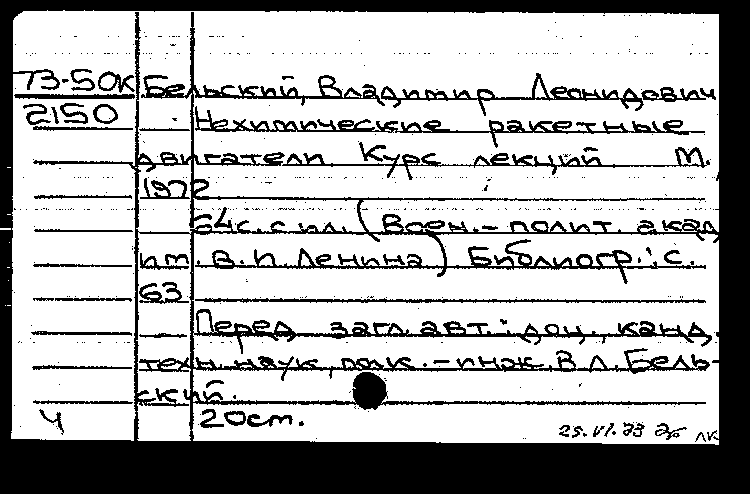 73-50К Бельский, Владимир Леонидович
2150 Нехимические ракетные
двигатели. Курс лекций. М.
1972
64с. с ил. (Воен.-полит. акад
им. В.И. Ленина) Библиогр.: с.
63
Перед загл. авт.: доц., канд.
техн. наук, полк.-инж. В.Л. Бель-
ский.
Ч 20ст.
25.VI.73 лк